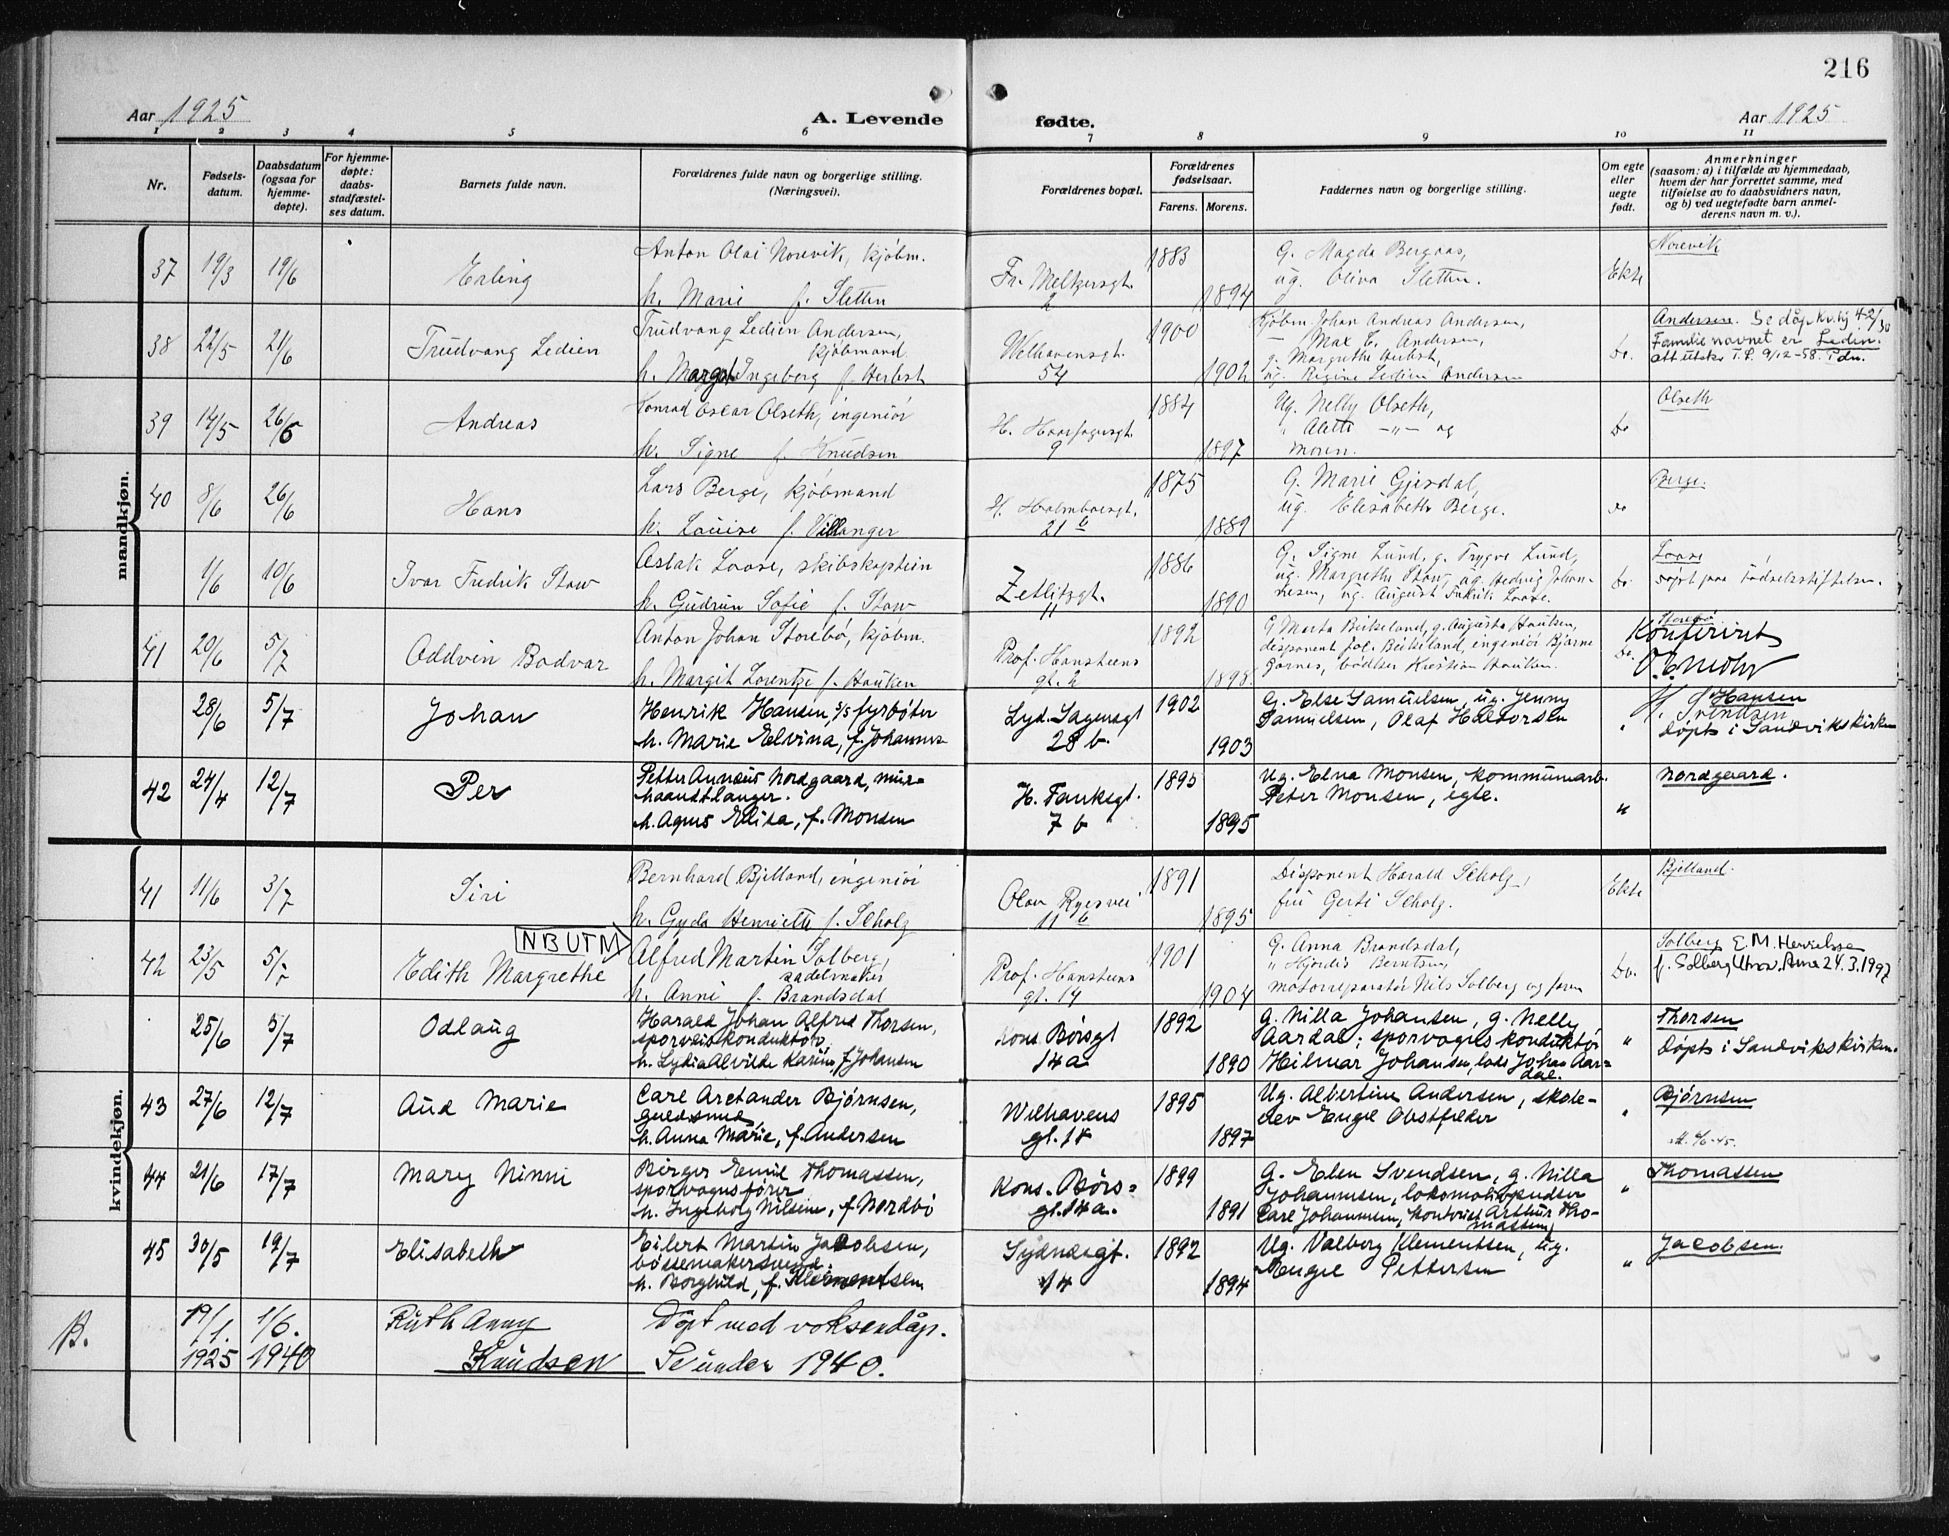 216
Aar 1925
A. Levende
fødte.
Aar 1925
1 2 3 4 5 6 7 8 9 10 11
Nr.
Fødsels-
datum.
Daabsdatum
(ogsaa for
hjemme-
døpte).
For hjemme-
døpte:
daabs-
stadfæstel-
ses datum.
Barnets fulde navn.
Forældrenes fulde navn og borgerlige stilling.
(Næringsvei).
Forældrenes bopæl.
Forældrenes
fødselsaar.
Farens. Morens.
Faddernes navn og borgerlige stilling.
Om egte
eller
uegte
født.
Anmerkninger
(saasom: a) i tilfælde av hjemmedaab,
hvem der har forrettet samme, med
tilføielse av to daabsvidners navn,
og b) ved uegtefødte barn anmel-
derens navn m. v.).
mandkjøn.
37 19/3 19/6 Erling
Anton Olai Norevik, kjøbm.
h. Marie f. Sletten
Fr. Meltzersgt.
2
1883
1894
G. Magda Bergaas,
ug. Oliva Sletten.
Ekte
Norevik
38 22/5 21/6 Trudvang Ledien
Trudvang Ledien Andersen,
kjøbmand.
h. Margot Ingeberg f. Herbst
Welhavensgt.
54
1900
1902
Kjøbm Johan Andreas Andersen,
— Max E. Andersen,
g. Margrethe Herbst,
ug. Regine Ledien Andersen
Do.
Andersen. Se dåp kv.kj 42/30
Familienavnet er Ledin.
att.utskr. T.P. 9/12-58. Pdn.
39 14/5 26/6 Andreas
Konrad Oscar Olseth, ingeniør
h. Signe f. Knudsen
H. Haarfagersgt.
9
1884
1897
Ug. Nelly Olseth,
" Alette —"— og
moren.
Do
Olseth
40 8/6 26/6 Hans
Lars Berge, kjøbmand
h. Louise f. Villanger
H. Holmboesgt.
21 b
1875
1889
G. Marie Gjesdal,
ug. Elisabeth Berge.
Do
Berge.
1/6 10/6 Ivar Fredrik Staw
Aslak Laase, skibskaptein
h. Gudrun Sofie f. Staw
Zetlitzgt.
11
1886
1890
G. Signe Lund, g. Trygve Lund,
ug. Margrethe Staw, ug. Hedvig Johan-
nesen, ug. August Fredrik Laase.
Do.
Laase
Døpt paa Fødselsstiftelsen.
41 20/6 5/7 Oddvin Bodvar
Anton Johan Storebø, kjøbm.
h. Margit Lorentze f. Hauken
Prof. Hansteens
gt. 2
1892
1898
G. Marta Birkeland, g. Augusta Hauken,
disponent Joh. Birkeland, ingeniør Bjarne
Garnes, bødker Kristian Hauken.
Do.
Storebø
Konferirt
28/6 5/7 Johan
Henrik Hansen, s/s fyrbøter
h. Marie Elvina, f. Johannes-
Lyd. Sagensgt
28 b.
1902
1903
G. Else Samuelsen, ug. Jenny
Samuelsen, Olaf Halvorsen
"
Hansen
Svendsen
Døpts i Sandvikskirken
42 24/4 12/7 Per
Petter Annæus Nordgaard, mur-
haandtlanger.
h. Agnes Elisa, f. Monsen
H. Tanksgt.
7 b
1895
1895
Ug. Elna Monsen, kommunearb.
Peter Monsen, egte.
"
Nordgaard.
kvindekjøn.
41 11/6 3/7 Siri
Bernhard Bjelland, ingeniør
h. Gyda Henriette f. Scholz
Olav Ryesvei
11 b
1891
1895
Disponent Harald Scholz,
fru Gerti Scholz.
Ekte
Bjelland.
NB UTM
42 23/5 5/7 Edith Margrethe
Alfred Martin Solberg,
sadelmaker
h. Anni f. Brandsdal
Prof. Hansteens
gt. 14
1901
1904
G. Anna Brandsdal,
" Hjørdis Berntsen,
motorreparatør Nils Solberg og faren
Do.
Solberg E.M. Hervielsse
f. Solberg Utmv. Arna 24.3.1997
25/6 5/7 Odlaug
Harald Johan Alfred Thorsen,
sporveiskonduktør,
h. Lydia Alvilde Karine, f. Johansen
Kons. Børsgt
14a
1892
1890
G. Nilla Johansen, g. Nelly
Aardal; sporvogns konduktør
Hilmar Johansen, lods Johan Aar-
dal.
"
Thorsen
Døpts i Sandvikskirken.
43 27/6 12/7 Aud Marie
Carl Arctander Bjørnsen,
guldsmed,
h. Anna Marie, f. Andersen
Welhavens
gt. 18
1895
1897
Ug. Albertine Andersen, skole-
elev Engel Obstfelder
"
Bjørnsen
att. 4/6-45.
44 21/6 17/7 Mary Ninni
Birger Emil Thomassen,
sporvognsfører
h. Ingeborg Nilsine, f. Nordbø
Kons. Børs-
gt. 14a.
1899
1891
G. Elen Svendsen, g. Nilla
Johannesen, lokomotivpudser
Carl Johannesen, kontorist Arthur Tho-
massen,
"
Thomassen
45 30/5 19/7 Elisabeth
Eilert Martin Jacobsen,
bøssemakersvend.
h. Borghild, f. Klementsen
Sydnesgt.
14
1892
1894
Ug. Valborg Klementsen, ug.
Engel Pettersen
"
Jacobsen.
B. 19/1. 1925 1/6. 1940
Ruth Anny
Knudsen
Döpt med voksendåp.
Se under 1940.